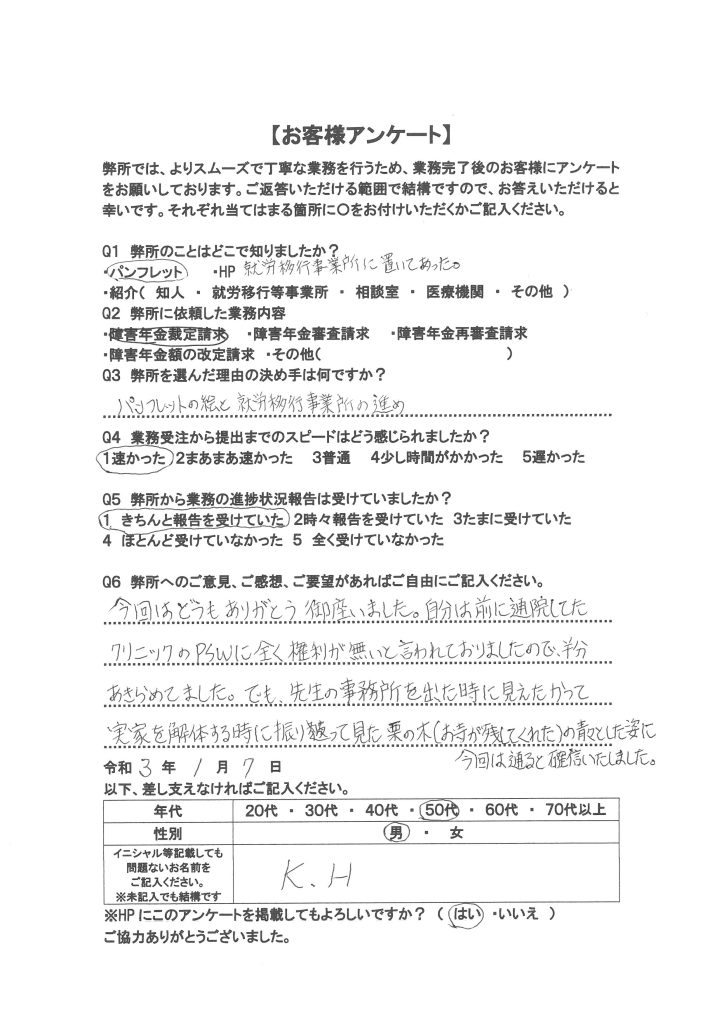 【お客様アンケート】
弊所では、よりスムーズで丁寧な業務を行うため、業務完了後のお客様にアンケート
をお願いしております。ご返答いただける範囲で結構ですので、お答えいただけると
幸いです。それぞれ当てはまる箇所に〇をお付けいただくかご記入ください。
Q1 弊所のことはどこで知りましたか？
・パンフレット ・HP 就労移行事業所に置いてあった。
・紹介( 知人 ・ 就労移行等事業所 ・ 相談室 ・ 医療機関 ・ その他 )
Q2 弊所に依頼した業務内容
・障害年金裁定請求 ・障害年金審査請求 ・障害年金再審査請求
・障害年金額の改定請求 ・その他( )
Q3 弊所を選んだ理由の決め手は何ですか？
パンフレットの絵と就労移行事業所の進め
Q4 業務受注から提出までのスピードはどう感じられましたか？
1速かった 2まあまあ速かった 3普通 4少し時間がかかった 5遅かった
Q5 弊所から業務の進捗状況報告は受けていましたか？
1 きちんと報告を受けていた 2時々報告を受けていた 3たまに受けていた
4 ほとんど受けていなかった 5 全く受けていなかった
Q6 弊所へのご意見、ご感想、ご要望があればご自由にご記入ください。
今回はどうもありがとう御座いました。自分は前に通院してた
クリニックのPSWに全く権利が無いと言われておりましたので、半分
あきらめてました。でも、先生の事務所を出た時に見えたかつて
実家を解体する時に振り返って見た栗の木(お寺が残してくれた)の青々とした姿に
今回は通ると確信いたしました。
令和 3 年 1 月 7 日
以下、差し支えなければご記入ください。
年代 20代 ・ 30代 ・ 40代 ・ 50代 ・ 60代 ・ 70代以上
性別 男 ・ 女
イニシャル等記載しても
問題ないお名前を
ご記入ください。
※未記入でも結構です
K.H
※HPにこのアンケートを掲載してもよろしいですか？ ( はい ・いいえ )
ご協力ありがとうございました。